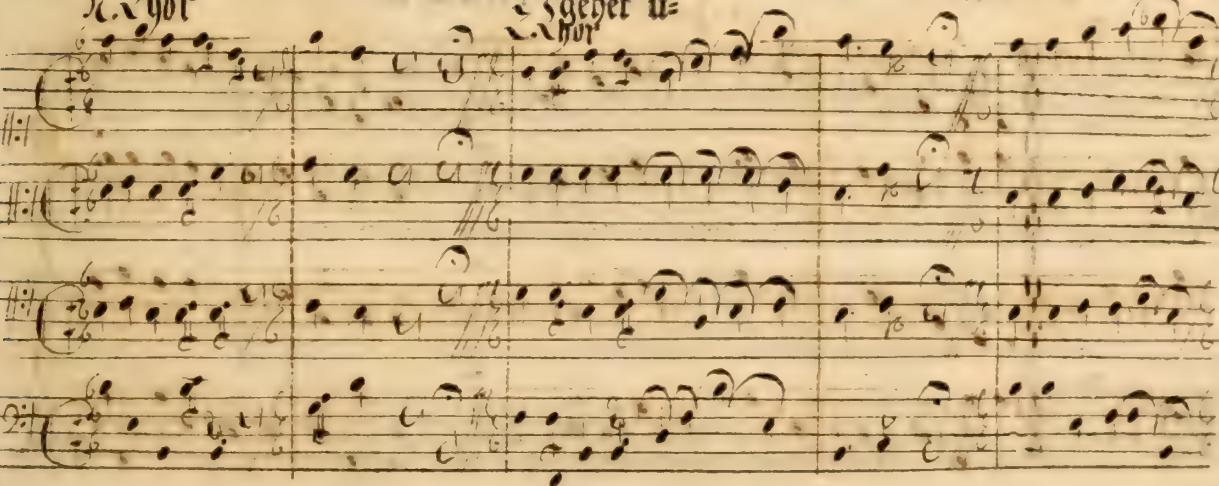 R. Chor
gehet u=
L. Chor